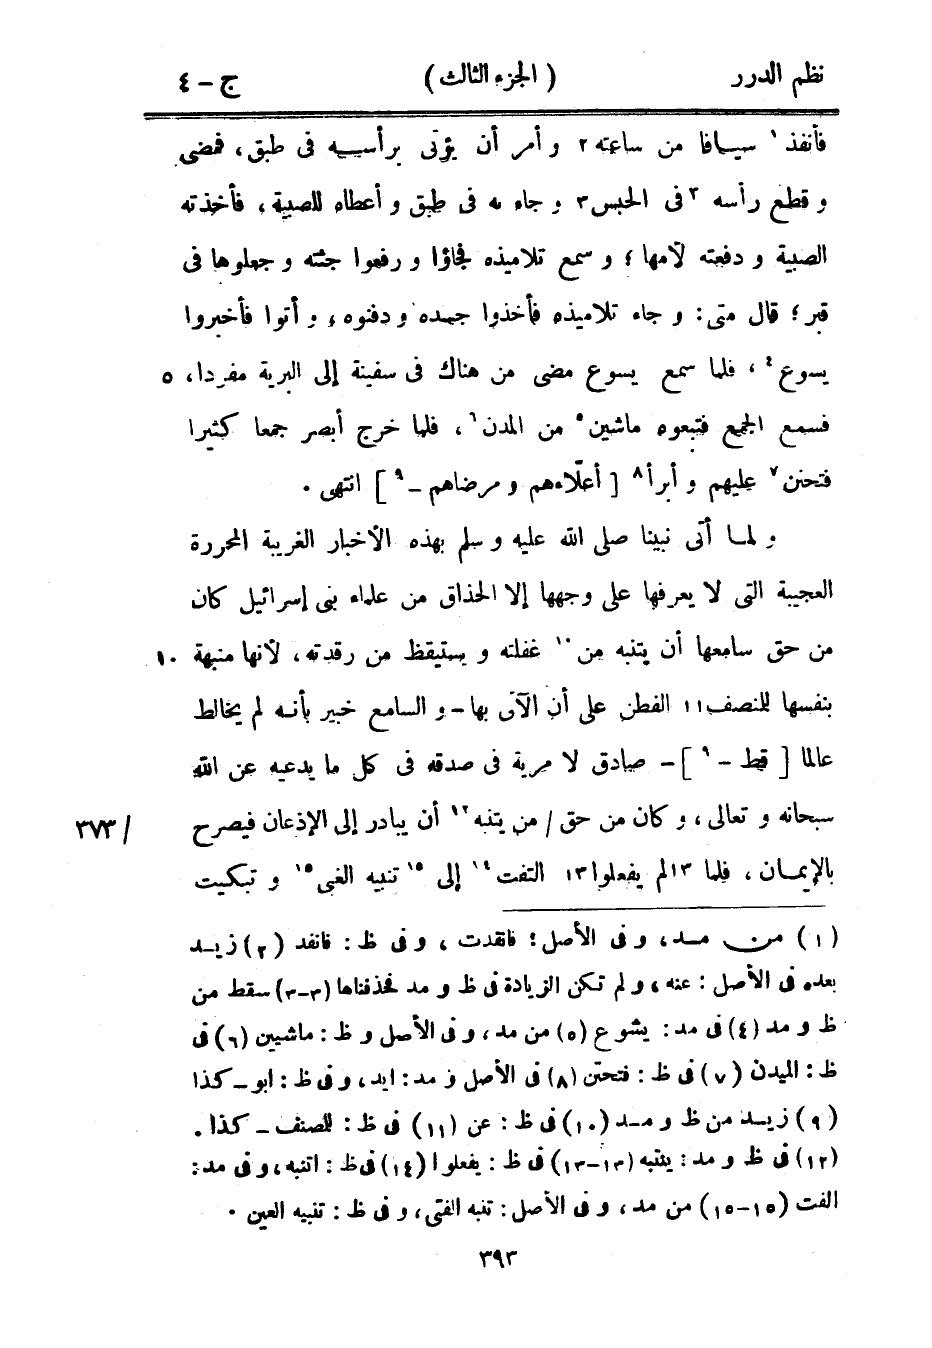 نظم الدرر (الجزء الثالث) ج - ٤
فأنفذ ١ سيافا من ساعته ٢ و أمر أن يؤتى برأسه فى طبق، فمضى
و قطع رأسه ٣ فى الحبس ٣ و جاء به فى طبق و أعطاه للصبية، فأخذته
الصبية و دفعته لأمها؛ و سمع تلاميذه فجاؤا و رفعوا جثته و جعلوها فى
قبر؛ قال متى: و جاء تلاميذه فأخذوا جسده و دفنوه، و أتوا فأخبروا
يسوع ٤، فلما سمع يسوع مضى من هناك فى سفينة إلى البرية مفردا، ٥
فسمع الجمع فتبعوه ماشين ٥ من المدن ٦، فلما خرج أبصر جمعا كثيرا
فتحنن ٧ عليهم و أبرأ ٨ [ أعلّاءهم و مرضاهم - ٩ ] انتهى .
و لما أتى نبينا صلى الله عليه و سلم بهذه الأخبار الغريبة المحررة
العجيبة التى لا يعرفها على وجهها إلا الحذاق من علماء بنى إسرائيل كان
من حق سامعها أن يتنبه من ١٠ غفلته و يستيقظ من رقدته، لأنها منبهة ١٠
بنفسها للنصف ١١ الفطن على أن الآتى بها - و السامع خبير بأنه لم يخالط
عالما [ قط - ٩ ] - صادق لا مرية فى صدقه فى كل ما يدعيه عن الله
سبحانه و تعالى، و كان من حق / من يتنبه ١٢ أن يبادر إلى الإذعان فيصرح / ٣٧٣
بالإيمان، فلما ١٣ لم يفعلوا ١٣ التفت ١٤ إلى ١٥ تنبيه الغبى ١٥ و تبكيت
(١) من مد، و فى الأصل: فانقدت، و فى ظ: فانفد (٢) زيد
بعده فى الأصل: عنه، و لم تكن الزيادة فى ظ و مد فحذفناها (٣-٣) سقط من
ظ و مد (٤) فى مد: يشوع (٥) من مد، و فى الأصل و ظ: ماشيين (٦) فى
ظ: الميدن (٧) فى ظ: فتحتن (٨) فى الأصل و مد: ايد، و فى ظ: ابو - كذا
(٩) زيد من ظ و مد (١٠) فى ظ: عن (١١) فى ظ: للصنف - كذا .
(١٢) فى ظ و مد: ينتبه (١٣-١٣) فى ظ: يفعلوا (١٤) فى ظ: اتنبه، و فى مد:
الفت (١٥-١٥) من مد، و فى الأصل: تنبه الفتى، و فى ظ: تنبيه العين .
٣٩٣